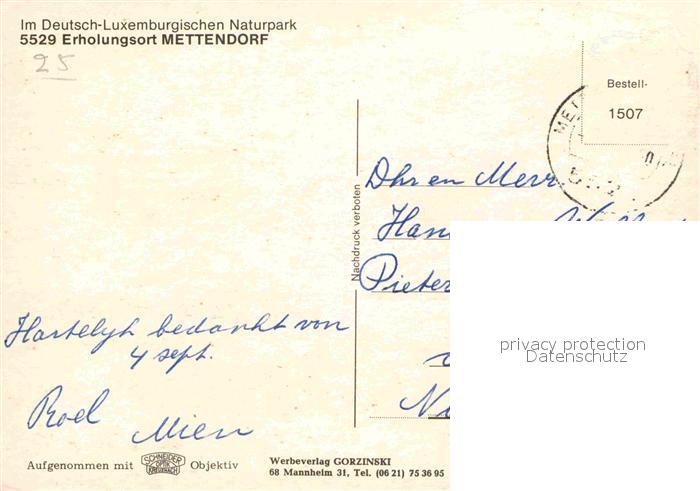 Im Deutsch-Luxemburgischen Naturpark
5529 Erholungsort METTENDORF
25
Bestell-
1507
METT
Nachdruck verboten
Dhr en Mevr.
Han
Pieter
privacy protection
Datenschutz
Hartelyk bedankt von
4 sept.
Roel
Mien
Aufgenommen mit SCHNEIDER OPTIK KREUZNACH Objektiv
Werbeverlag GORZINSKI
68 Mannheim 31, Tel. (06 21) 75 36 95